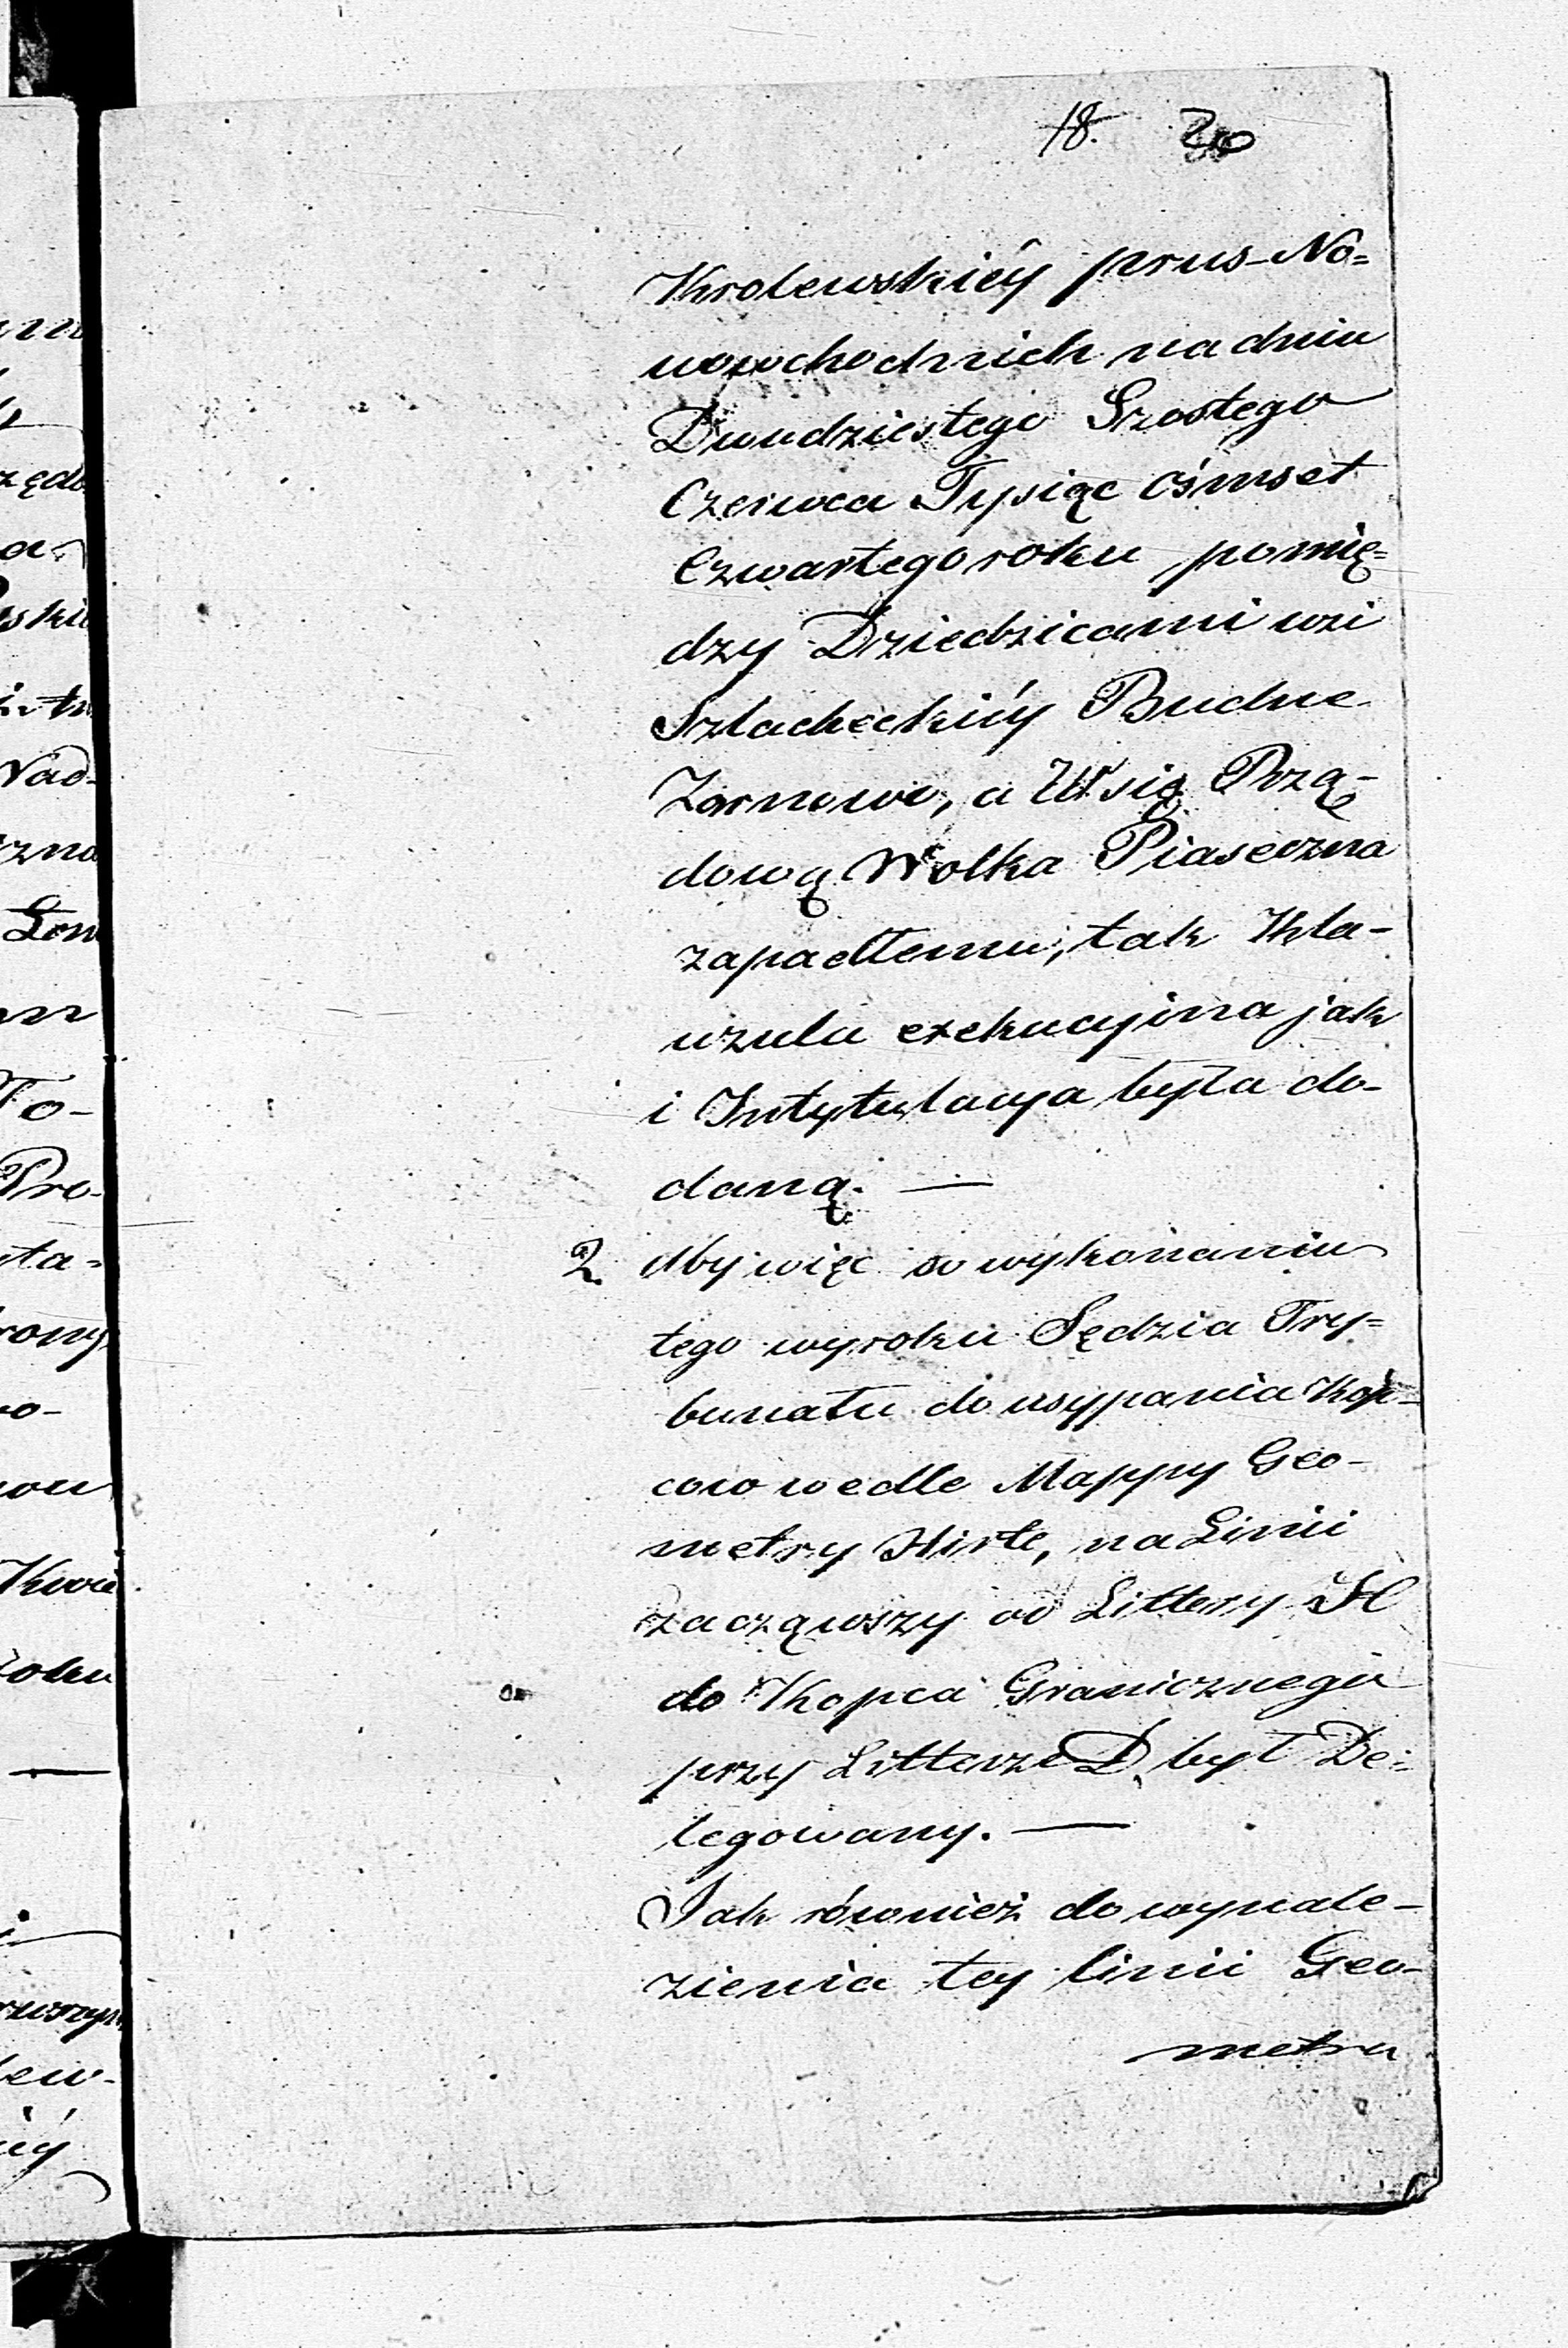 18. 20
Krolewskiéy prus-No=
wowschodnich na dniu
Dwudziestego Szostego
Czerwca Tysiąc ośmset
Czwartego roku pomię=
dzy Dziedzicami wsi
Szlacheckiéy Budne
Zarnowo, a Wsią Rzą-
dową Wolka Piaseczna
zapadłemu, tak Kla-
uzula exekucyina jak
i Intytulacya była do-
daną. —
2. Aby więc w wykonaniu
tego wyroku Sędzia Try=
bunału do usypania Kop=
cow wedle Mappy Geo-
metry Hirte, na Linii
zacząwszy od Littery H
do Kopca Granicznego
przy Litterze D, był De-
legowany. —
Jak również do wynale-
zienia tey linii Geo-
metra
zędo
a
skie
Nad-
zna
To-
Pro-
ta-
rony
o-
lew-